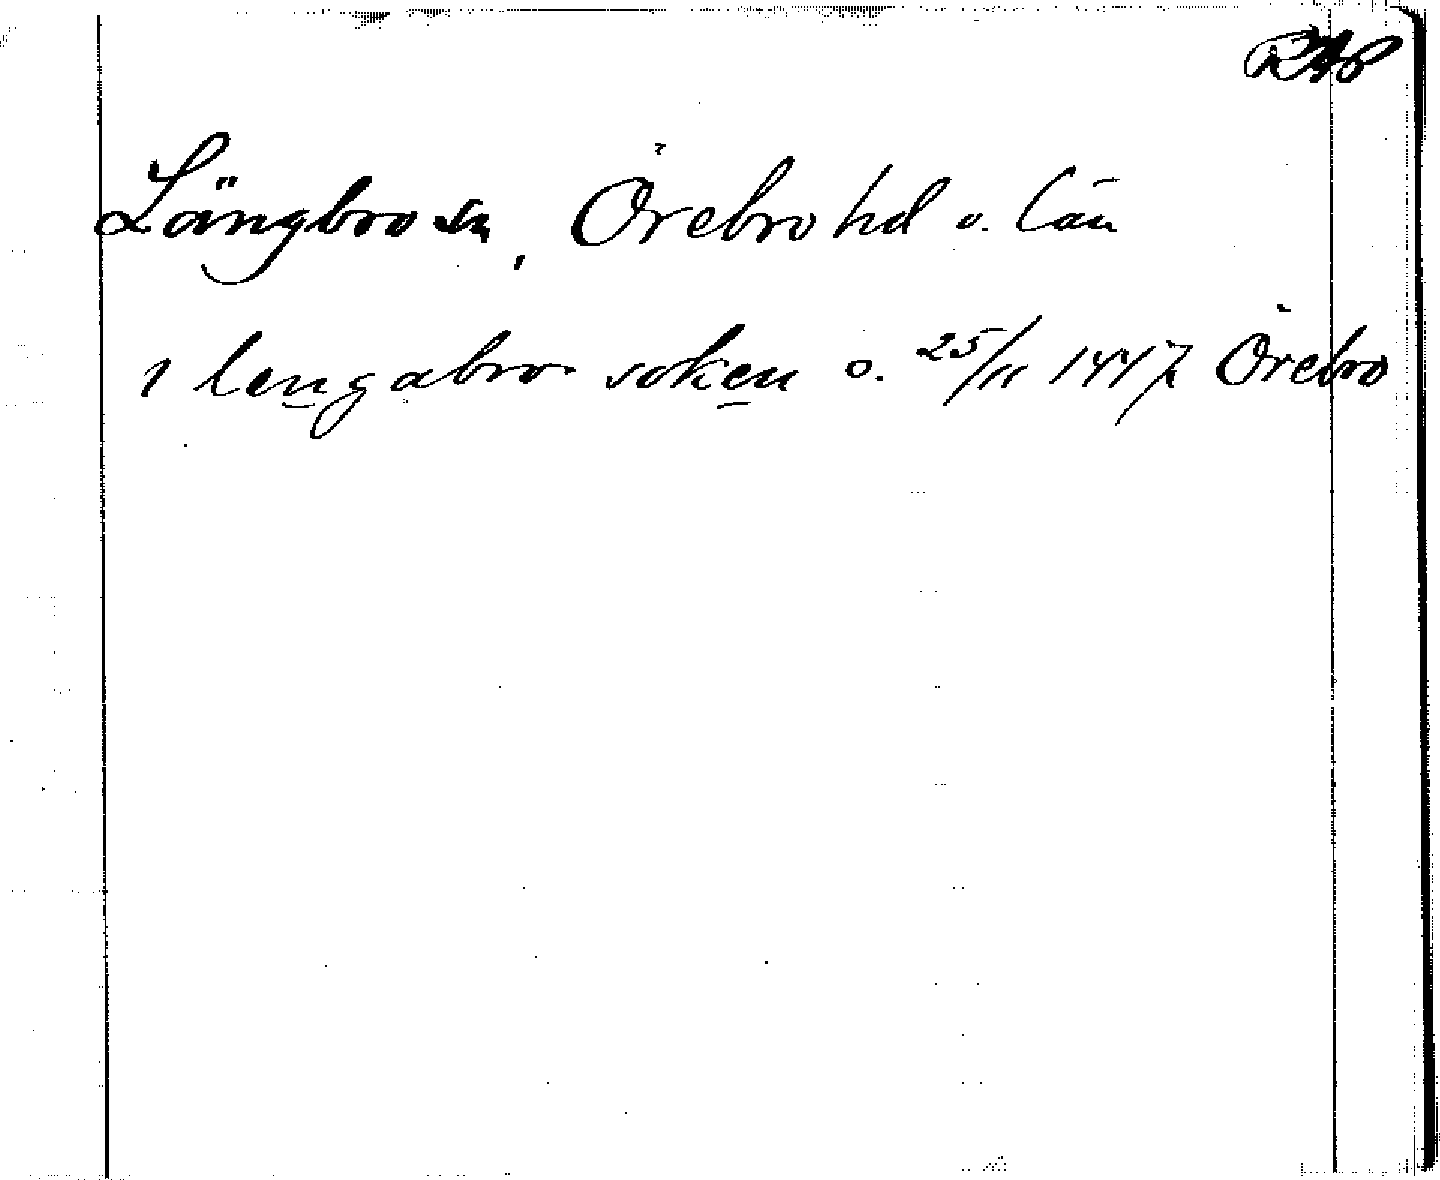 RAP
Längbro sn, Örebro hd o. län
i lengabro soken o. 25/11 1447 Örebro